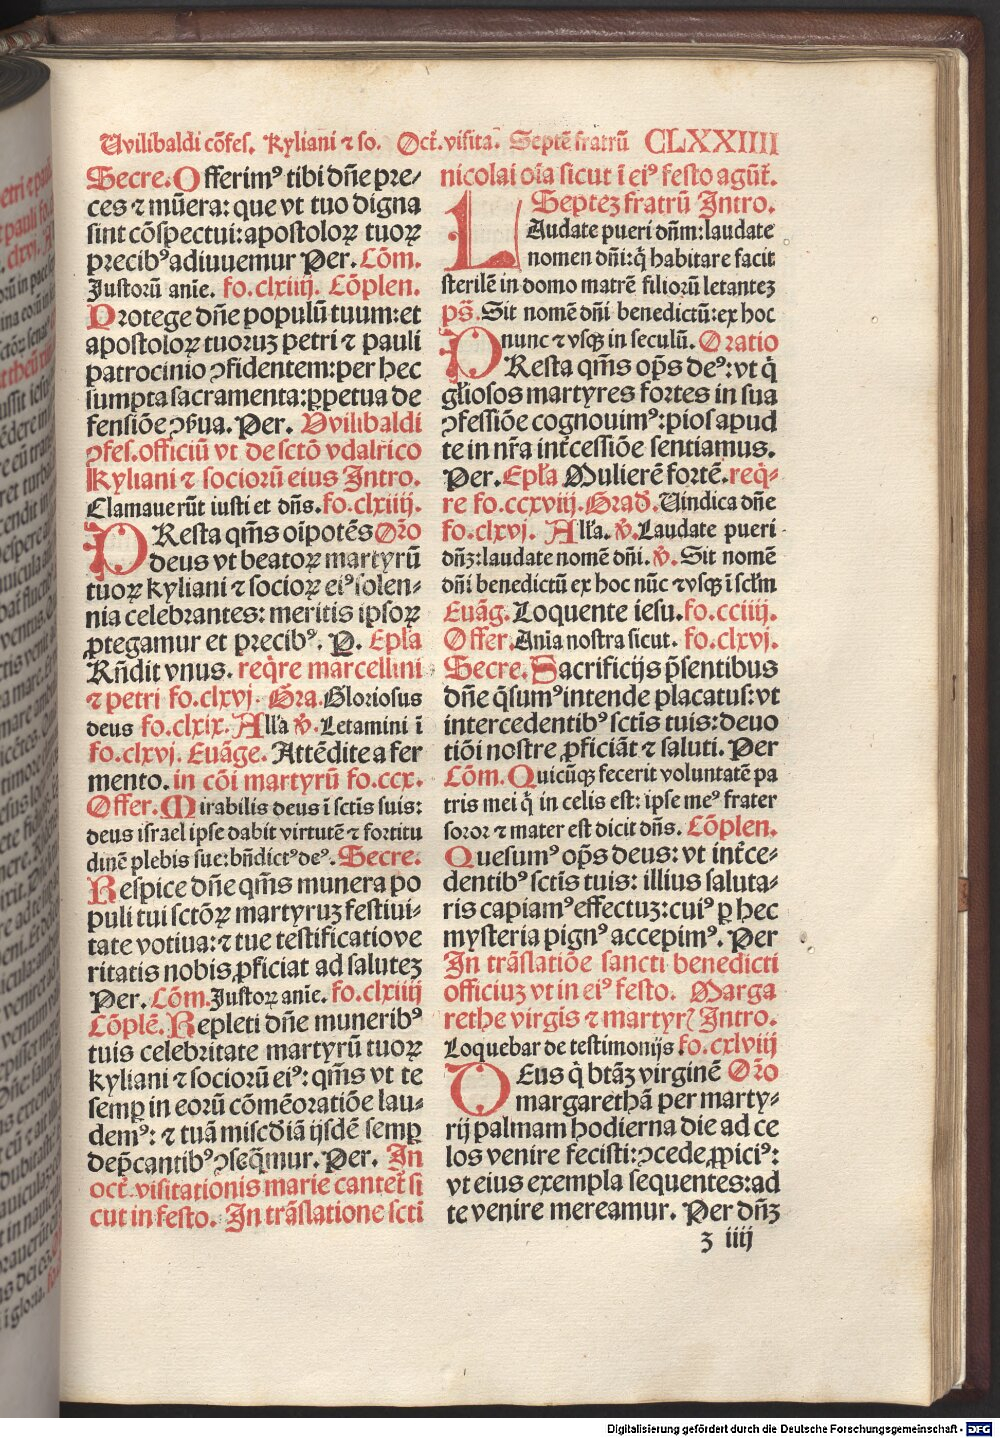 Uvilibaldi cõfes. Kyliani ⁊ so. Oct̃. visita. Septẽ fratrũ CLXXIIII
Secre. Offerimꝰ tibi dñe pre-
ces ⁊ mũera: que vt tuo digna
sint cõspectui: apostoloꝝ tuoꝝ
precibꝰ adiuuemur Per. Cõm.
Justorũ anie. fo. clxiiij. Cõplen.
Protege dñe populũ tuum: et
apostoloꝝ tuoruz petri ⁊ pauli
patrocinio ꝯfidentem: per hec
sumpta sacramenta: ꝑpetua de
fensiõe ꝯẜua. Per. Vvilibaldi
ꝯfes. officiũ vt de sctõ vdalrico
Kyliani ⁊ sociorũ eius Intro.
Clamauerũt iusti et dñs. fo. clxiiij.
PResta qm̃s oĩpotẽs Or̃o
deus vt beatoꝝ martyrũ
tuoꝝ kyliani ⁊ socioꝝ eiꝰ solen-
nia celebrantes: meritis ipsoꝝ
ꝓtegamur et precibꝰ. P. Epl̃a
Rñdit vnus. req̃re marcellini
⁊ petri fo. clxvj. Gra. Gloriosus
deus fo. clxix. All'a ꝟ. Letamini ĩ
fo. clxvj. Euãge. Attẽdite a fer
mento. in cõi martyrũ fo. ccx.
Offer. Mirabilis deus ĩ sctis suis:
deus israel ipse dabit virtutẽ ⁊ fortitu
dinẽ plebis sue: bñdictꝰ deꝰ. Secre.
Respice dñe qm̃s munera po
puli tui sctõꝝ martyruz festiui-
tate votiua: ⁊ tue testificatiove
ritatis nobis ꝓficiat ad salutez
Per. Cõm. Justoꝝ anie. fo. clxiiij
Cõplẽ. Repleti dñe muneribꝰ
tuis celebritate martyrũ tuoꝝ
kyliani ⁊ sociorũ eiꝰ: qm̃s vt te
semꝑ in eorũ cõmẽoratiõe lau-
demꝰ: ⁊ tuã miscd̃iã ijsdẽ semꝑ
dep̃cantibꝰ ꝯseq̃mur. Per. In
oct̃. visitationis marie cantet̃ si
cut in festo. In trãslatione scti
nicolai oĩa sicut ĩ eiꝰ festo agũt̃.
Septez fratrũ Intro.
LAudate pueri dñm: laudate
nomen dñi: q̃ habitare facit
sterilẽ in domo matrẽ filiorũ letantez
pš. Sit nomẽ dñi benedictũ: ex hoc
nunc ⁊ vsqꝫ in seculũ. Oratio
PResta qm̃s op̃s deꝰ: vt q̃
gl̃iosos martyres fortes in sua
ꝯfessiõe cognouimꝰ: pios apud
te in nr̃a int̃cessiõe sentiamus.
Per. Epl̃a Mulierẽ fortẽ. req̃-
re fo. ccxviij. Grad̃. Vindica dñe
fo. clxvj. All'a. ꝟ. Laudate pueri
dñz: laudate nomẽ dñi. ꝟ. Sit nomẽ
dñi benedictũ ex hoc nũc ⁊ vsqꝫ ĩ scl̃m
Euãg. Loquente iesu. fo. cciiij.
Offer. Ania nostra sicut. fo. clxvj.
Secre. Sacrificijs p̃sentibus
dñe q̃sumꝰ intende placatus: vt
intercedentibꝰ sctis tuis: deuo
tiõi nostre ꝓficiãt ⁊ saluti. Per
Cõm. Quicũqꝫ fecerit voluntatẽ pa
tris mei q̃ in celis est: ipse meꝰ frater
soror ⁊ mater est dicit dñs. Cõplen.
Quesumꝰ op̃s deus: vt int̃ce-
dentibꝰ sctis tuis: illius saluta-
ris capiamꝰ effectuz: cuiꝰ ꝑ hec
mysteria pignꝰ accepimꝰ. Per
In trãslatiõe sancti benedicti
officiuz vt in eiꝰ festo. Marga
rethe virgis ⁊ martyr̃ Intro.
Loquebar de testimonijs. fo. cxlviij
DEus q̃ btãz virginẽ Or̃o
margarethã per marty-
rij palmam hodierna die ad ce
los venire fecisti: ꝯcede ꝓpiciꝰ:
vt eius exempla sequentes: ad
te venire mereamur. Per dñz
z iiij
Digitalisierung gefördert durch die Deutsche Forschungsgemeinschaft - DFG